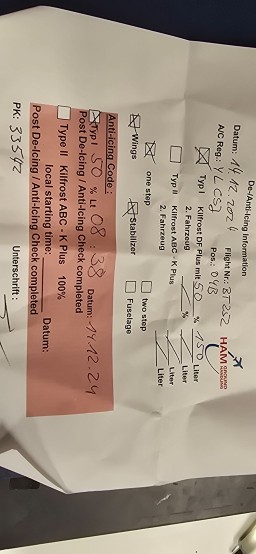 De/Anti-Icing Information
HAM GROUND HANDLING
Datum: 14.12.2024 Flight Nr.: BT252
A/C Reg.: YL CSJ Pos.: 04B
Typ I Kilfrost DF Plus mit 50 % 150 Liter
2. Fahrzeug % Liter
Typ II Kilfrost ABC - K Plus Liter
2. Fahrzeug Liter
one step two step
Wings Stabilizer Fuselage
Anti-Icing Code:
Typ I 50 % Lt 08:38 Datum: 14.12.24
Post De-Icing / Anti-Icing Check completed
Type II Kilfrost ABC - K Plus 100%
local starting time: Datum:
Post De-Icing / Anti-Icing Check completed
PK: 33542 Unterschrift: